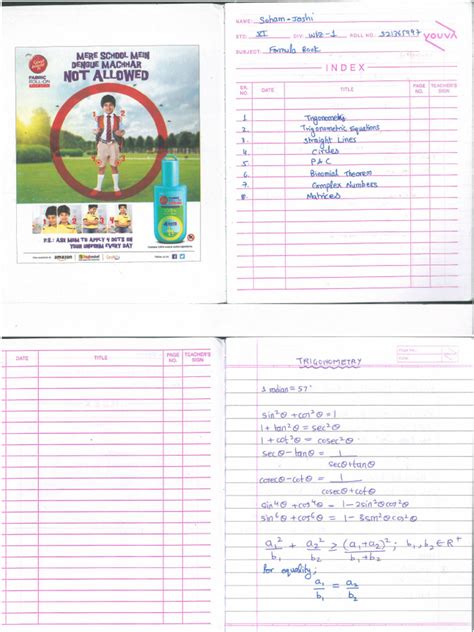 MERE SCHOOL MEIN
DENGUE MACHHAR
NOT ALLOWED
FABRIC
ROLL-ON
P.S.: ASK MOM TO APPLY 4 DOTS ON
YOUR UNIFORM EVERY DAY
amazon
NAME: Soham-Joshi
STD.: XI DIV.: WIZ-1 ROLL NO.
YOUVA
SUBJECT: Formula Book
INDEX
SR. NO. DATE TITLE PAGE NO. TEACHER'S SIGN
1 Trigonometry
2 Trigonometric Equations
3 Straight Lines
4 Circles
5 P&C
6 Binomial Theorem
7 Complex Numbers
8 Matrices
DATE TITLE PAGE NO. TEACHER'S SIGN
TRIGONOMETRY
1 radian = 57°
sin²θ + cos²θ = 1
1 + tan²θ = sec²θ
1 + cot²θ = cosec²θ
secθ - tanθ = 1/(secθ + tanθ)
cosecθ - cotθ = 1/(cosecθ + cotθ)
sin⁴θ + cos⁴θ = 1 - 2sin²θcos²θ
sin⁶θ + cos⁶θ = 1 - 3sin²θcos²θ
a₁²/b₁ + a₂²/b₂ ≥ (a₁+a₂)²/(b₁+b₂); b₁, b₂ ∈ R⁺
for equality;
a₁/b₁ = a₂/b₂